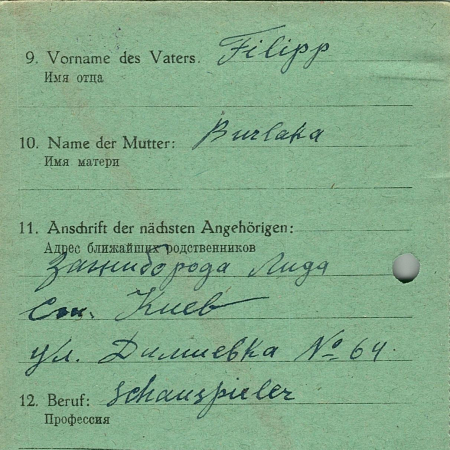 9. Vorname des Vaters. Filipp
Имя отца
10. Name der Mutter: Burlaka
Имя матери
11. Anschrift der nächsten Angehörigen:
Адрес ближайших родственников
Загниборода Лида
Ст. Киев
ул. Димиевка № 64.
12. Beruf: Schauspieler
Профессия